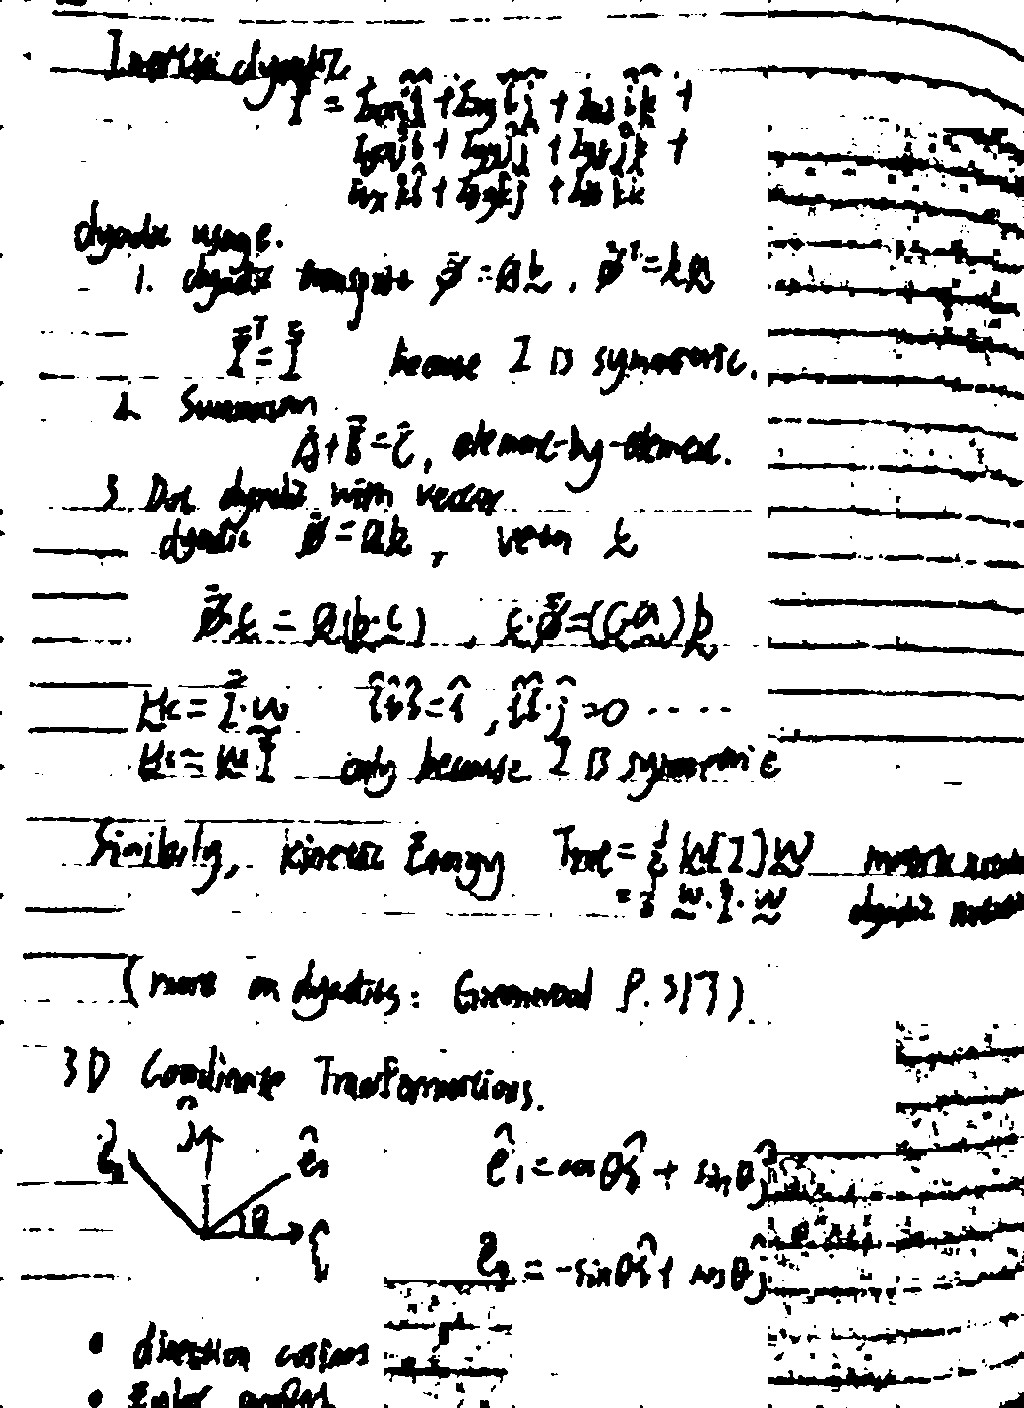 Inertia dyadic
Ī = Ixx îî + Ixy îĵ + Ixz îk̂ +
Iyx ĵî + Iyy ĵĵ + Iyz ĵk̂ +
Izx k̂î + Izy k̂ĵ + Izz k̂k̂
dyadic usage.
1. dyadic transpose φ̿ = a b , φ̿ᵀ = b a
I̿ᵀ = I̿ because I is symmetric.
2. Summation
A̿ + B̿ = C̿, element-by-element.
3 Dot dyadic with vector
dyadic φ̿ = a b , vector c
φ̿·c = a(b·c) , c·φ̿ = (c·a)b
Hc = I̿·ω îî·î = î , îî·ĵ = 0 ·····
Hc = ω·I̿ only because I is symmetric
Similarly, kinetic Energy Trot = ½ ω[I]ω matrix
= ½ ω·I̿·ω dyadic
(more on dyadics: Greenwood P. 317)
3D Coordinate Transformations.
ê₂ ĵ ê₁ ê₁ = cosθ î + sinθ ĵ
θ î
ê₂ = -sinθ î + cosθ ĵ
• direction cosines
• Euler